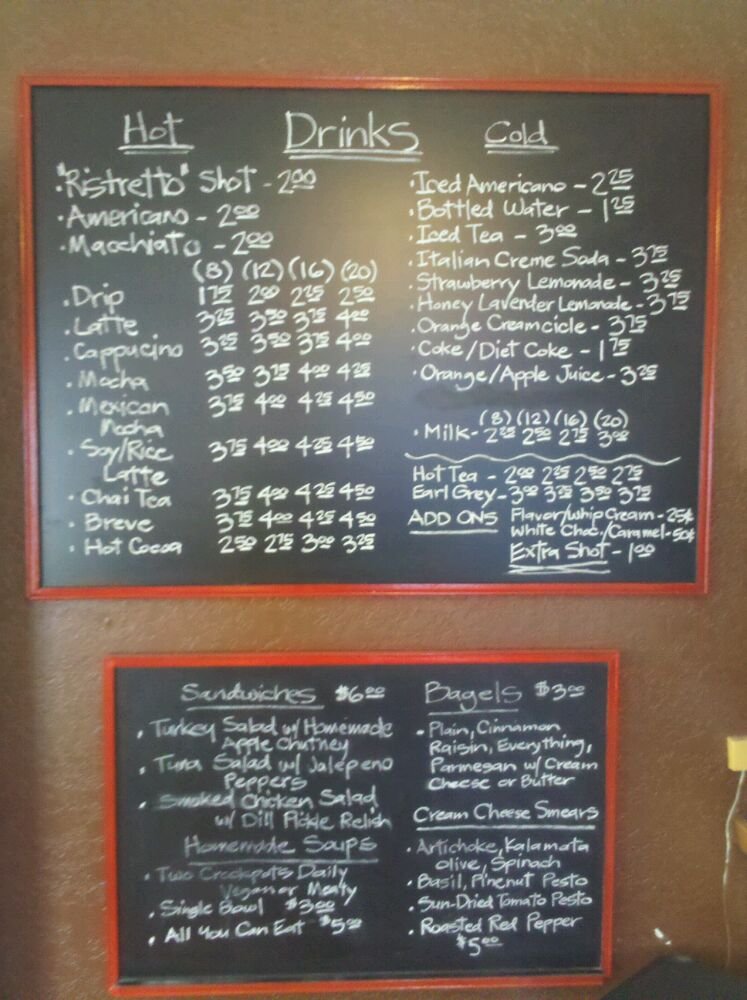 Hot Drinks Cold
"Ristretto" Shot - 2.00
· Americano - 2.00
· Macchiato - 2.00
(8) (12) (16) (20)
· Drip 1.75 2.00 2.25 2.50
· Latte 3.25 3.50 3.75 4.00
· Cappucino 3.25 3.50 3.75 4.00
· Mocha 3.50 3.75 4.00 4.25
· Mexican 3.75 4.00 4.25 4.50
Mocha
· Soy/Rice 3.75 4.00 4.25 4.50
Latte
· Chai Tea 3.75 4.00 4.25 4.50
· Breve 3.75 4.00 4.25 4.50
· Hot Cocoa 2.50 2.75 3.00 3.25
· Iced Americano - 2.25
· Bottled Water - 1.25
· Iced Tea - 3.00
· Italian Creme Soda - 3.75
· Strawberry Lemonade - 3.25
· Honey Lavender Lemonade - 3.75
· Orange Creamcicle - 3.75
· Coke/Diet Coke - 1.75
· Orange/Apple Juice - 3.25
(8) (12) (16) (20)
· Milk - 2.25 2.50 2.75 3.00
Hot Tea - 2.00 2.25 2.50 2.75
Earl Grey - 3.00 3.25 3.50 3.75
ADD ONS Flavor/Whip Cream - 25¢
White Choc./Caramel - 50¢
Extra Shot - 1.00
Sandwiches $6.00
· Turkey Salad w/ Homemade
Apple Chutney
· Tuna Salad w/ Jalepeno
Peppers
· Smoked Chicken Salad
w/ Dill Pickle Relish
Homemade Soups
· Two Crockpots Daily
Vegan or Meaty
· Single Bowl $3.00
· All You Can Eat $5.00
Bagels $3.00
· Plain, Cinnamon
Raisin, Everything,
Parmesan w/ Cream
Cheese or Butter
Cream Cheese Smears
· Artichoke, Kalamata
olive, Spinach
· Basil, Pinenut Pesto
· Sun-Dried Tomato Pesto
· Roasted Red Pepper
$5.00